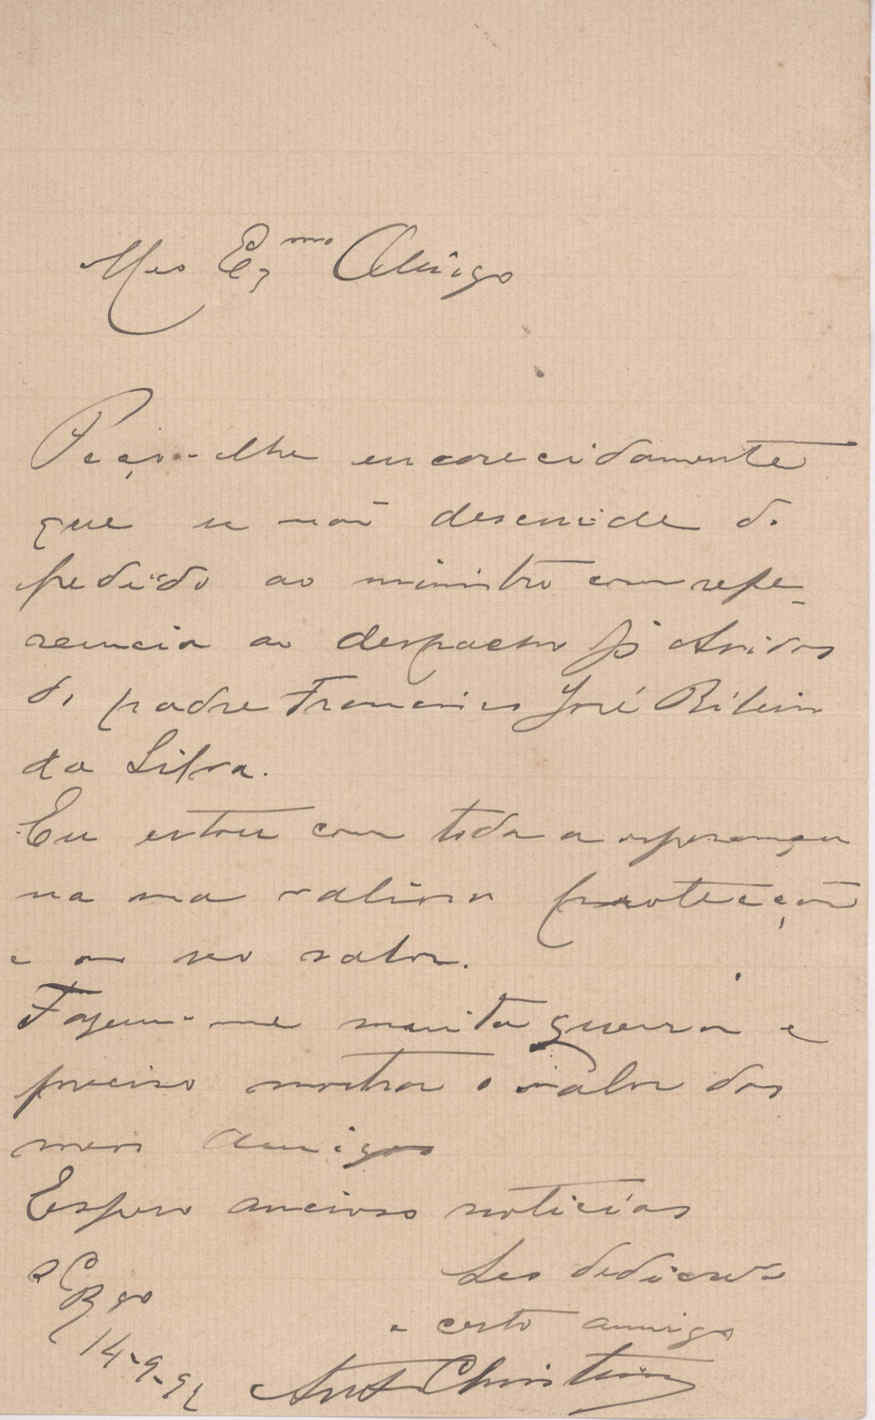 Meo Ex.mo Amigo
Peço-lhe encarecidamente
que se não descuide do
pedido ao ministro com refe-
rencia ao despacho p.a
do padre Francisco José Ribeiro
da Silva.
Eu estou com toda a esperança
na sua valiosa protecção
e no seo valor.
Fazem-me muita guerra e
preciso mostrar o valor dos
meos amigos
Espero ancioso noticias
Seo dedicado
e certo amigo
14-9-92
Ant Christino